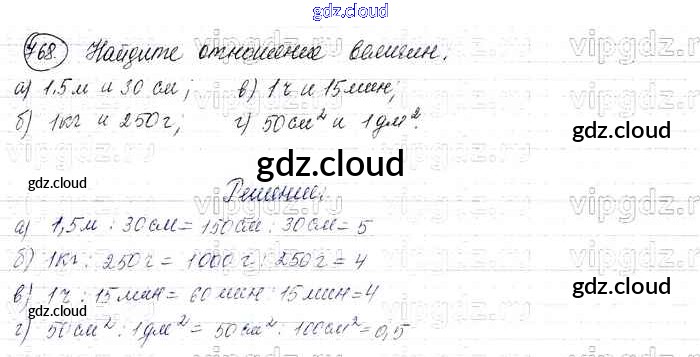 gdz.cloud
768. Найдите отношения величин.
а) 1,5м и 30 см; в) 1ч и 15мин;
б) 1кг и 250г; г) 50см² и 1дм².
gdz.cloud
gdz.cloud
gdz.cloud
Решение:
gdz.cloud
а) 1,5м : 30см = 150см : 30см = 5
б) 1кг : 250г = 1000г : 250г = 4
в) 1ч : 15мин = 60мин : 15мин = 4
gdz.cloud
г) 50см² : 1дм² = 50см² : 100см² = 0,5
gdz.cloud